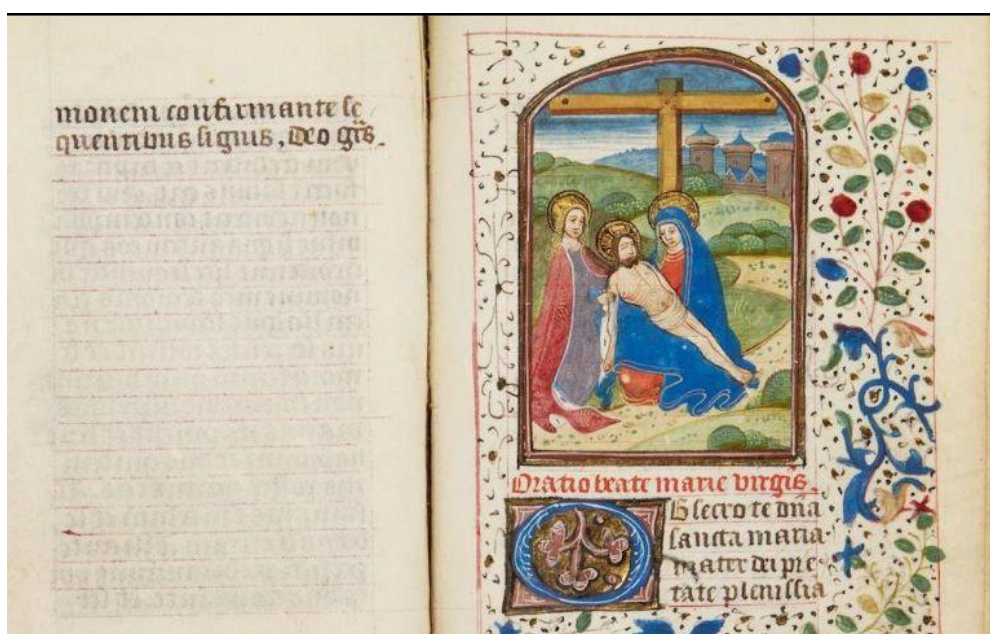 monem confirmante se
quentibus signis, Deo grās.
Oratio beate marie virgīs.
Obsecro te dn̄a
sancta maria
mater dei pie
tate plenissīa